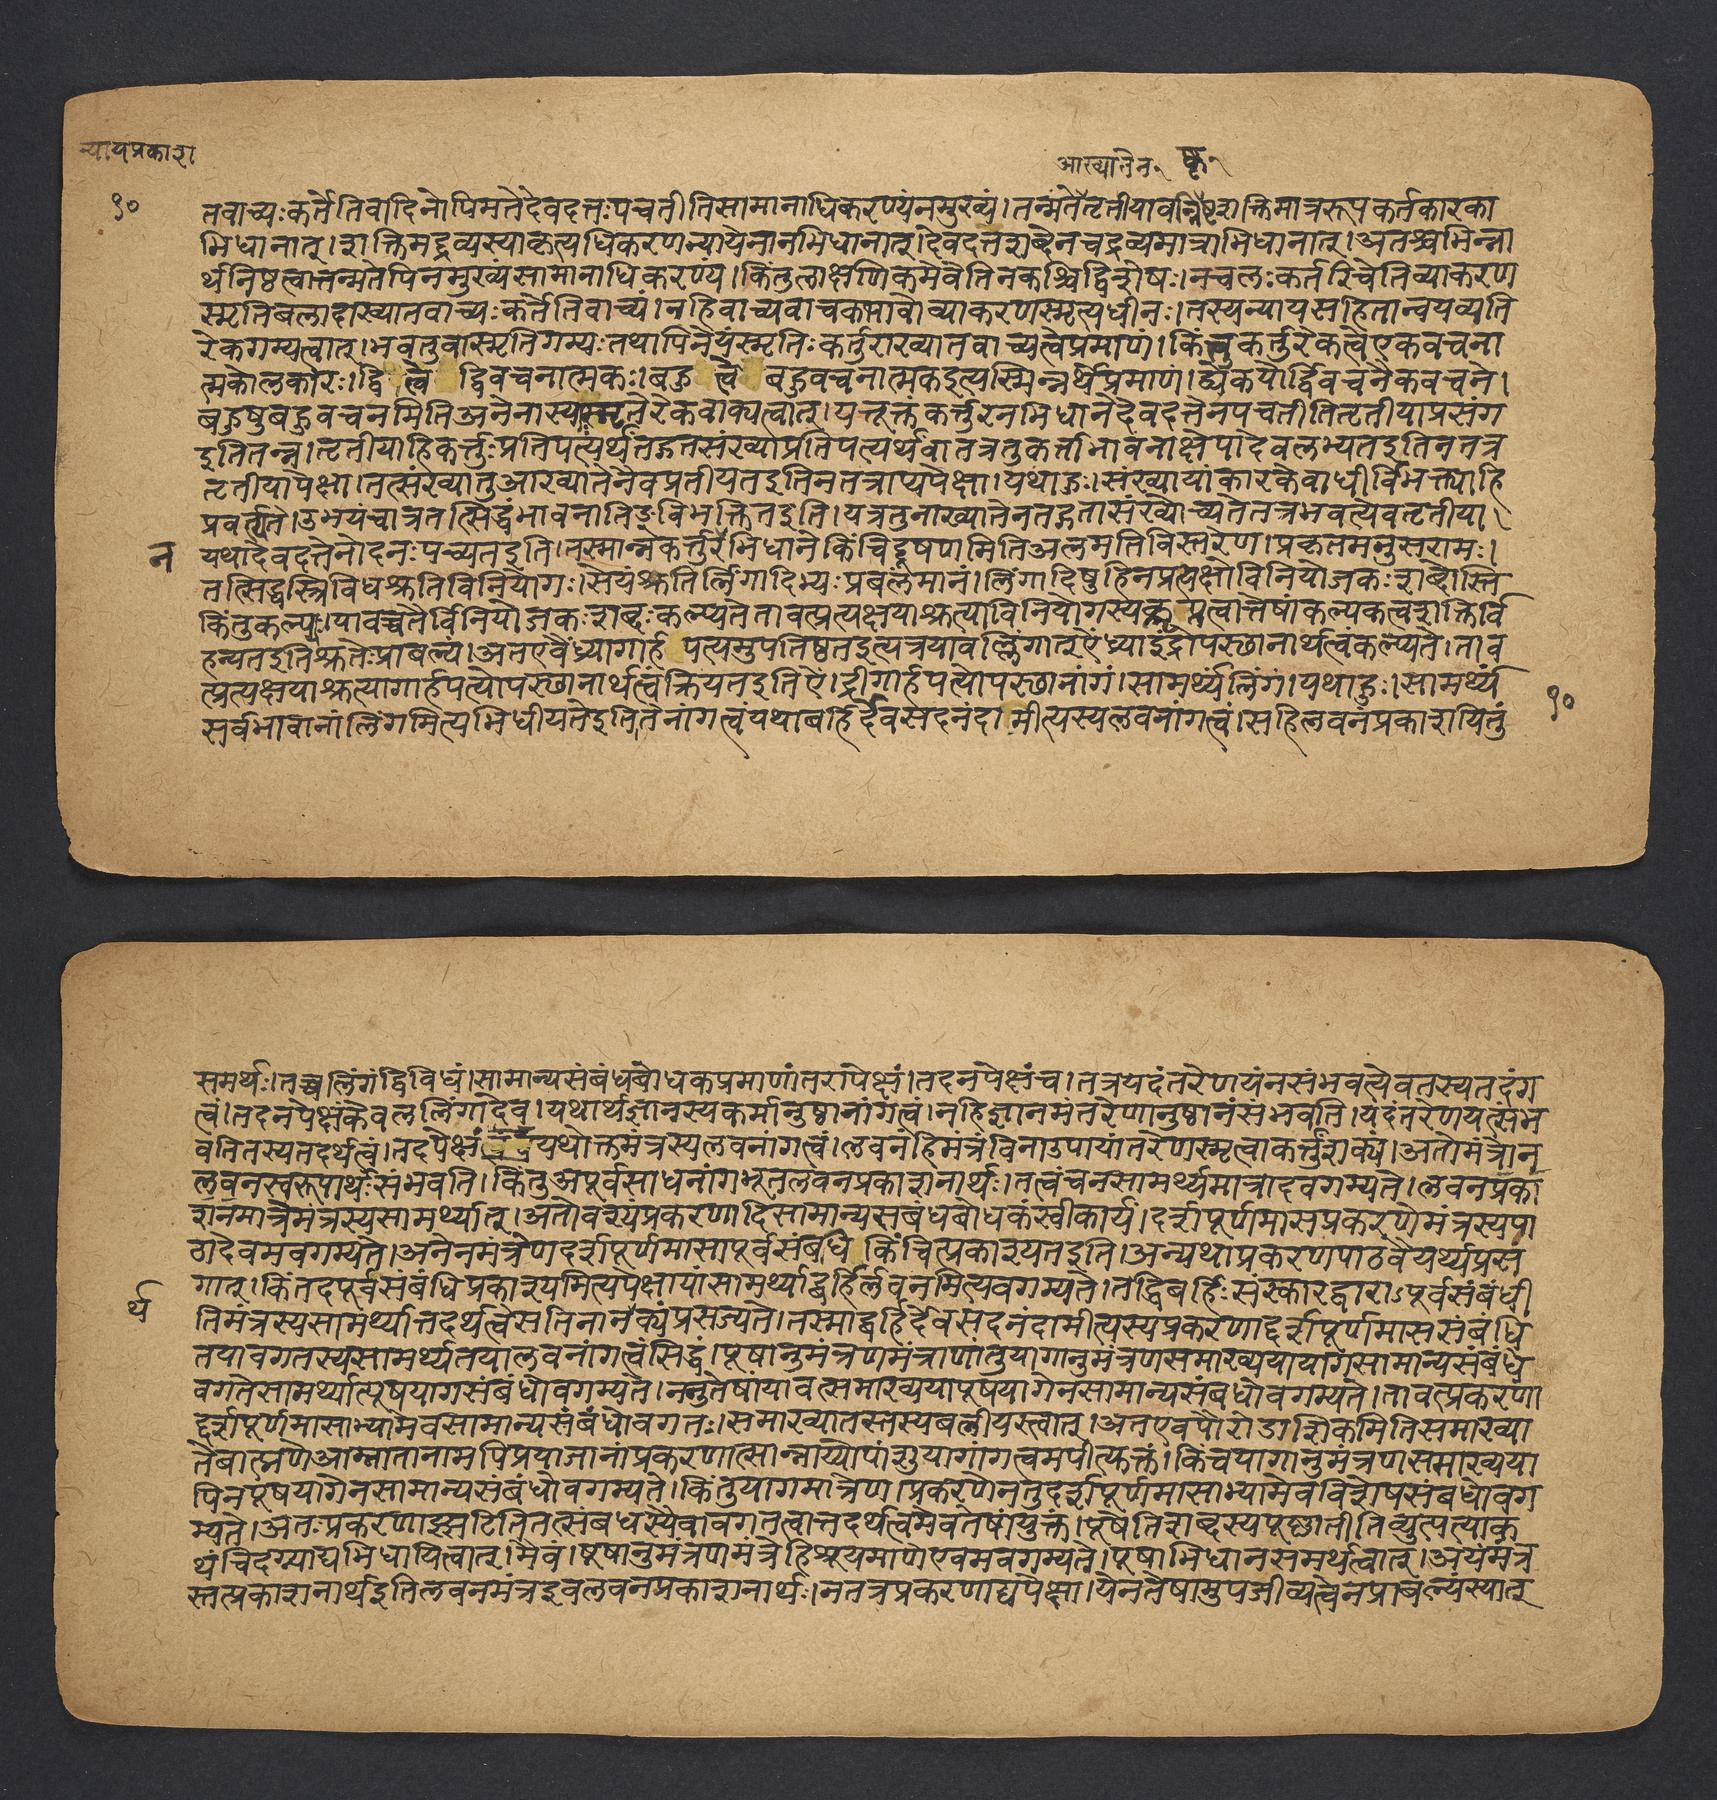 न्यायप्रकाश
आख्यातेन१ कृ१
१०
तवाच्यःकर्तेतिवादिनोपिमतेदेवदत्तःपचतीतिसामानाधिकरण्यंनमुख्यं।तन्मतेतृतीयावन्निष्टशक्तिमात्ररूपकर्तकारका
भिधानात्।शक्तिमद्द्रव्यस्याकृत्यधिकरणन्यायेनानभिधानात्।देवदत्तशब्देनचद्रव्यमात्राभिधानात्।अतश्चभिन्ना
र्थनिष्ठत्वात्तन्मतेपिनमुख्यंसामानाधिकरण्यं।किंतुलाक्षणिकमेवेतिनकश्चिद्विशेषः।नचलःकर्तरिचेतिव्याकरण
स्मृतिबलादाख्यातवाच्यःकर्तेतिवाच्यं।नहिवाच्यवाचकभावोव्याकरणस्मृत्यधीनः।तस्यन्यायसहितान्वयव्यति
रेकगम्यत्वात्।भवतुवास्मृतिगम्यःतथापिनेयंस्मृतिःकर्त्तुराख्यातवाच्यत्वेप्रमाणं।किंतुकर्त्तुरेकत्वेएकवचना
त्मकोलकारः।द्वित्वे द्विवचनात्मकः।बहुत्वे बहुवचनात्मकइत्यस्मिन्नर्थेप्रमाणं।द्व्येकयोर्द्विवचनैकवचने।
बहुषुबहुवचनमितिअनेनास्यस्मृतेरेकवाक्यत्वात्।यत्तूक्तंकर्त्तुरनभिधानेदेवदत्तेनपचतीतितृतीयाप्रसंग
इतितन्न।तृतीयाहिकर्त्तुःप्रतिपत्यर्थंतद्गतसंख्याप्रतिपत्यर्थंवातत्रतुकर्त्ताभावनाक्षेपादेवलभ्यतइतिनतत्र
तृतीयापेक्षा।तत्संख्यातुआख्यातेनैवप्रतीयतइतिनतत्राप्यपेक्षा।यथाहुः।संख्यायांकारकेवाधीर्विभक्त्याहि
प्रवर्त्तते।उभयंचात्रतत्सिद्धंभावनातिङ्विभक्तितइति।यत्रतुनाख्यातेनतद्गतासंख्योच्यतेतत्रभवत्येवतृतीया।
न यथादेवदत्तेनोदनःपच्यतइति।तस्मान्नकर्त्तुरभिधानेकिंचिद्दूषणमितिअलमतिविस्तरेण।प्रकृतमनुसरामः।
तत्सिद्धस्त्रिविधश्रुतिविनियोगः।सेयंश्रुतिर्लिंगादिभ्यःप्रबलंमानं।लिंगादिषुहिनप्रत्यक्षोविनियोजकःशब्दोस्ति
किंतुकल्प्यः।यावच्चतैर्विनियोजकःशब्दःकल्प्यतेतावत्प्रत्यक्षयाश्रुत्याविनियोगस्यकृतत्वात्तेषांकल्पकत्वशक्तिर्वि
हन्यतइतिश्रुतेःप्राबल्यं।अतएवैंध्र्यागार्हपत्यमुपतिष्ठतइत्यत्रयावल्लिंगात्ऐंध्र्याइंद्रोपस्थानार्थत्वंकल्प्यते।ताव
त्प्रत्यक्षयाश्रुत्यागार्हपत्योपस्थानार्थत्वंक्रियतइतिऐंद्रीगार्हपत्योपस्थानांगं।सामर्थ्यंलिंगं।यथाहुः।सामर्थ्यं
सर्वभावानांलिंगमित्यभिधीयतेइति।तेनांगत्वंयथाबर्हिर्देवसदनंदामीत्यस्यलवनांगत्वं।सहिलवनंप्रकाशयितुं
१०
समर्थः।तच्चलिंगंद्विविधं।सामान्यसंबंधबोधकप्रमाणांतरापेक्षं।तदनपेक्षंच।तत्रयदंतरेणयंनसंभवत्येवतस्यतदंग
त्वं।तदनपेक्षंकेवललिंगादेव।यथार्थज्ञानस्यकर्मानुष्ठानांगत्वं।नहिज्ञानमंतरेणानुष्ठानंसंभवति।यदंतरेणयत्संभ
वतितस्यतदर्थत्वं।तदपेक्षंयथोक्तमंत्रस्यलवनांगत्वं।लवनंहिमंत्रंविनाउपायांतरेणस्मृत्वाकर्त्तुंशक्यं।अतोमंत्रोन
लवनस्वरूपार्थःसंभवति।किंतुअपूर्वसाधनांगभूतलवनप्रकाशनार्थः।तत्वंचनसामर्थ्यमात्रादवगम्यते।लवनप्रका
शनमात्रेमंत्रस्यसामर्थ्यात्।अतोवश्यंप्रकरणादिसामान्यसंबंधबोधकंस्वीकार्यं।दर्शपूर्णमासप्रकरणेमंत्रस्यपा
ठादेवमवगम्यते।अनेनमंत्रेणदर्शपूर्णमासापूर्वसंबंधि किंचित्प्रकाश्यतइति।अन्यथाप्रकरणपाठवैयर्थ्यप्रसं
गात्।किंतदपूर्वसंबंधिप्रकाश्यमित्यपेक्षायांसामर्थ्याद्बर्हिर्लवनमित्यवगम्यते।तद्धिबर्हिःसंस्कारद्वाराऽपूर्वसंबंधी
र्थ तिमंत्रस्यसामर्थ्यात्तदर्थत्वेसतिनानक्यंप्रसज्यते।तस्माद्बर्हिर्देवसदनंदामीत्यस्यप्रकरणाद्दर्शपूर्णमाससंबंधि
तयावगतस्यसामर्थ्यतयालवनांगत्वंसिद्धं।पूषानुमंत्रणमंत्राणांतुयागानुमंत्रणसमाख्ययायागसामान्यसंबंधे
वगतेसामर्थ्यात्पूषयागसंबंधोवगम्यते।ननुतेषांयावत्समाख्ययापूषयागेनसामान्यसंबधोवगम्यते।तावत्प्रकरणा
द्दर्शपूर्णमासाभ्यामेवसामान्यसंबंधोवगतः।समाख्यातस्तस्यबलीयस्त्वात्।अतएवपौरोडाशिकमितिसमाख्या
तेब्राह्मणेआम्नातानामपिप्रयाजानांप्रकरणात्सान्नाय्योपांशुयागांगत्वमपीत्युक्तं।किंचयागानुमंत्रणसमाख्यया
पिनपूषयागेनसामान्यसंबंधोवगम्यते।किंतुयागमात्रेण।प्रकरणेनतुदर्शपूर्णमासाभ्यामेवविशेषसंबंधोवग
म्यते।अतःप्रकरणाझ्झटितितत्संबंधस्यैवावगतत्वात्तदर्थत्वमेवतेषांयुक्तं।पूषेतिशब्दस्यपूष्णातीतिव्युत्पत्याक
थंचिदग्न्याद्यभिधायित्वात्।मैवं।पूषानुमंत्रणमंत्रेहिश्रूयमाणेएवमवगम्यते।पूषाभिधानसमर्थत्वात्।अयंमंत्र
स्तत्प्रकाशनार्थइतिलवनमंत्रइवलवनप्रकाशनार्थः।नतत्रप्रकरणाद्यपेक्षा।येनतेषामुपजीव्यत्वेनप्राबल्यंस्यात्